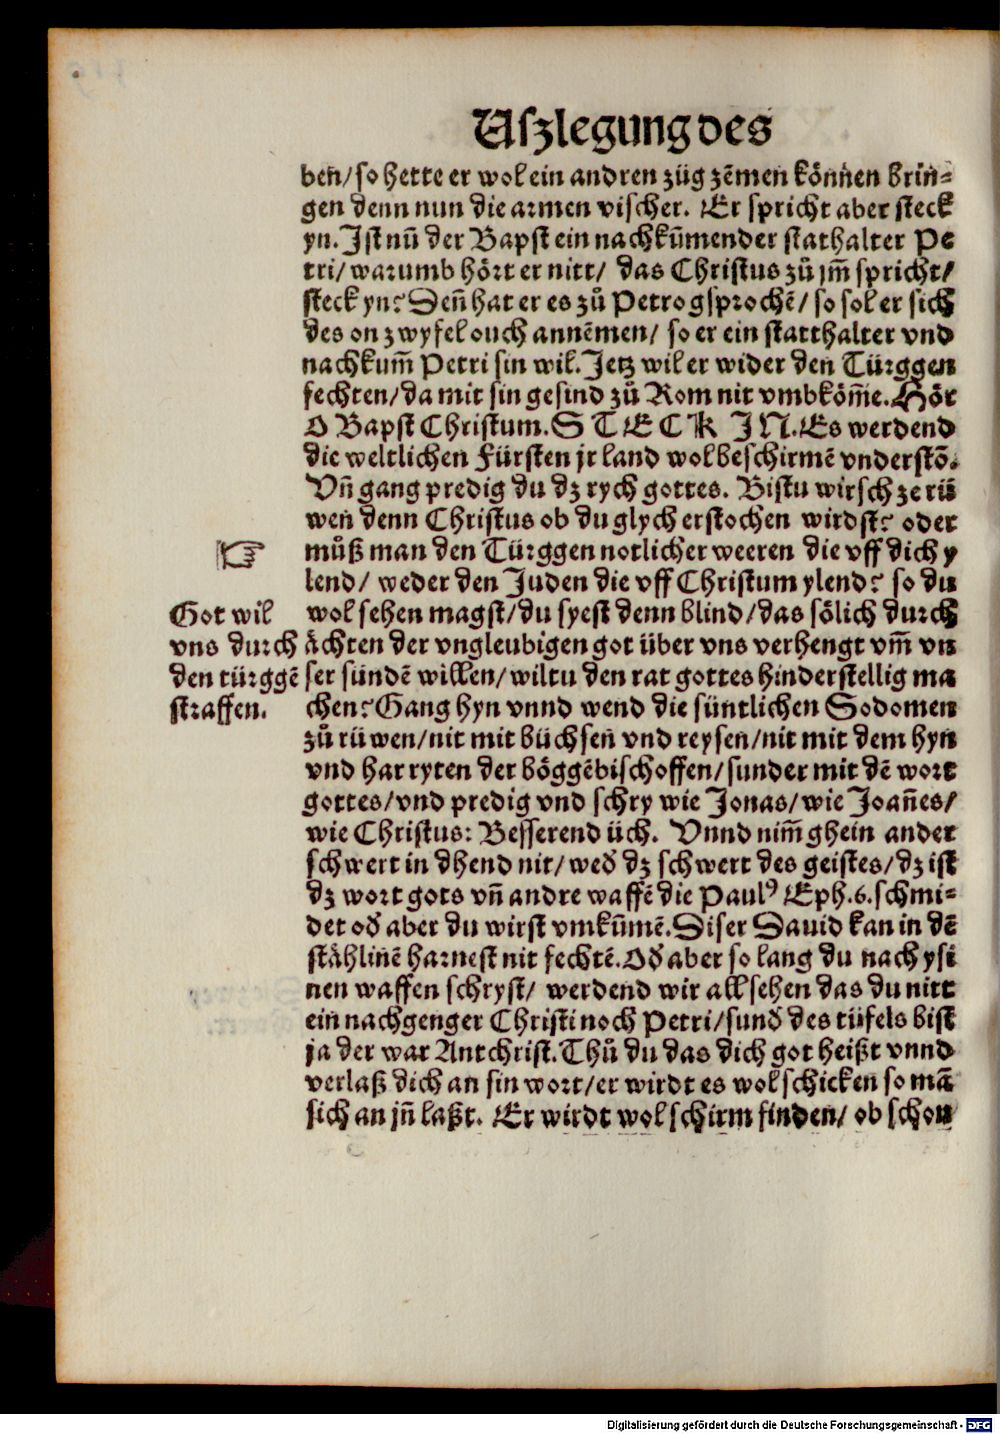 Uſzlegung des
ben/ so hette er wol ein andren züg zēmen können brin⸗
gen denn nun die armen vischer. Er spricht aber steck
yn. Ist nū der Bapst ein nachkūmender stathalter Pe
tri/ warumb hört er nitt/ das Christus zů jm̄ spricht/
steck yn? Deñ hat er es zů Petro gsprochē/ so sol er sich
des on zwyfel ouch annēmen/ so er ein statthalter vnd
nachkum̄ Petri sin wil. Jetz wil er wider den Türggen
fechten/ da mit sin gesind zů Rom nit vmbköm̄e. Hör
O Bapst Christum. S T E C K   I N. Es werdend
die weltlichen Fürsten jr land wol beschirmē vnderstō.
Vñ gang predig du dz rych gottes. Bistu wirsch ze rü
wen denn Christus ob du glych erstochen wirdst? oder
můß man den Türggen notlicher weeren die vff dich y
lend/ weder den Juden die vff Christum ylend? so du
Got wil
vns durch
den türggē
straffen.
wol sehen magst/ du syest denn blind/ das sölich durch
ächten der vngleubigen got über vns verhengt vm̄ vn
ser sündē willen/ wiltu den rat gottes hinderstellig ma
chen? Gang hyn vnnd wend die süntlichen Sodomen
zů rüwen/ nit mit büchsen vnd reysen/ nit mit dem hyn
vnd har ryten der böggēbischoffen/ sunder mit dē wort
gottes/ vnd predig vnd schry wie Jonas/ wie Joañes/
wie Christus: Besserend üch. Vnnd nim̄ ghein ander
schwert in dhend nit/ wed̕ dz schwert des geistes/ dz ist
dz wort gots vñ andre waffē die Paulꝰ Eph. 6. schmi⸗
det od̕ aber du wirst vmkūmē. Diser Dauid kan in dē
stählinē harnest nit fechtē. Od̕ aber so lang du nach ysi
nen waffen schryst/ werdend wir all sehen das du nitt
ein nachgenger Christi noch Petri/ sund̕ des tüfels bist
ja der war Antchrist. Thů du das dich got heißt vnnd
verlaß dich an sin wort/ er wirdt es wol schicken so mā
sich an jñ laßt. Er wirdt wol schirm finden/ ob schon
Digitalisierung gefördert durch die Deutsche Forschungsgemeinschaft - DFG